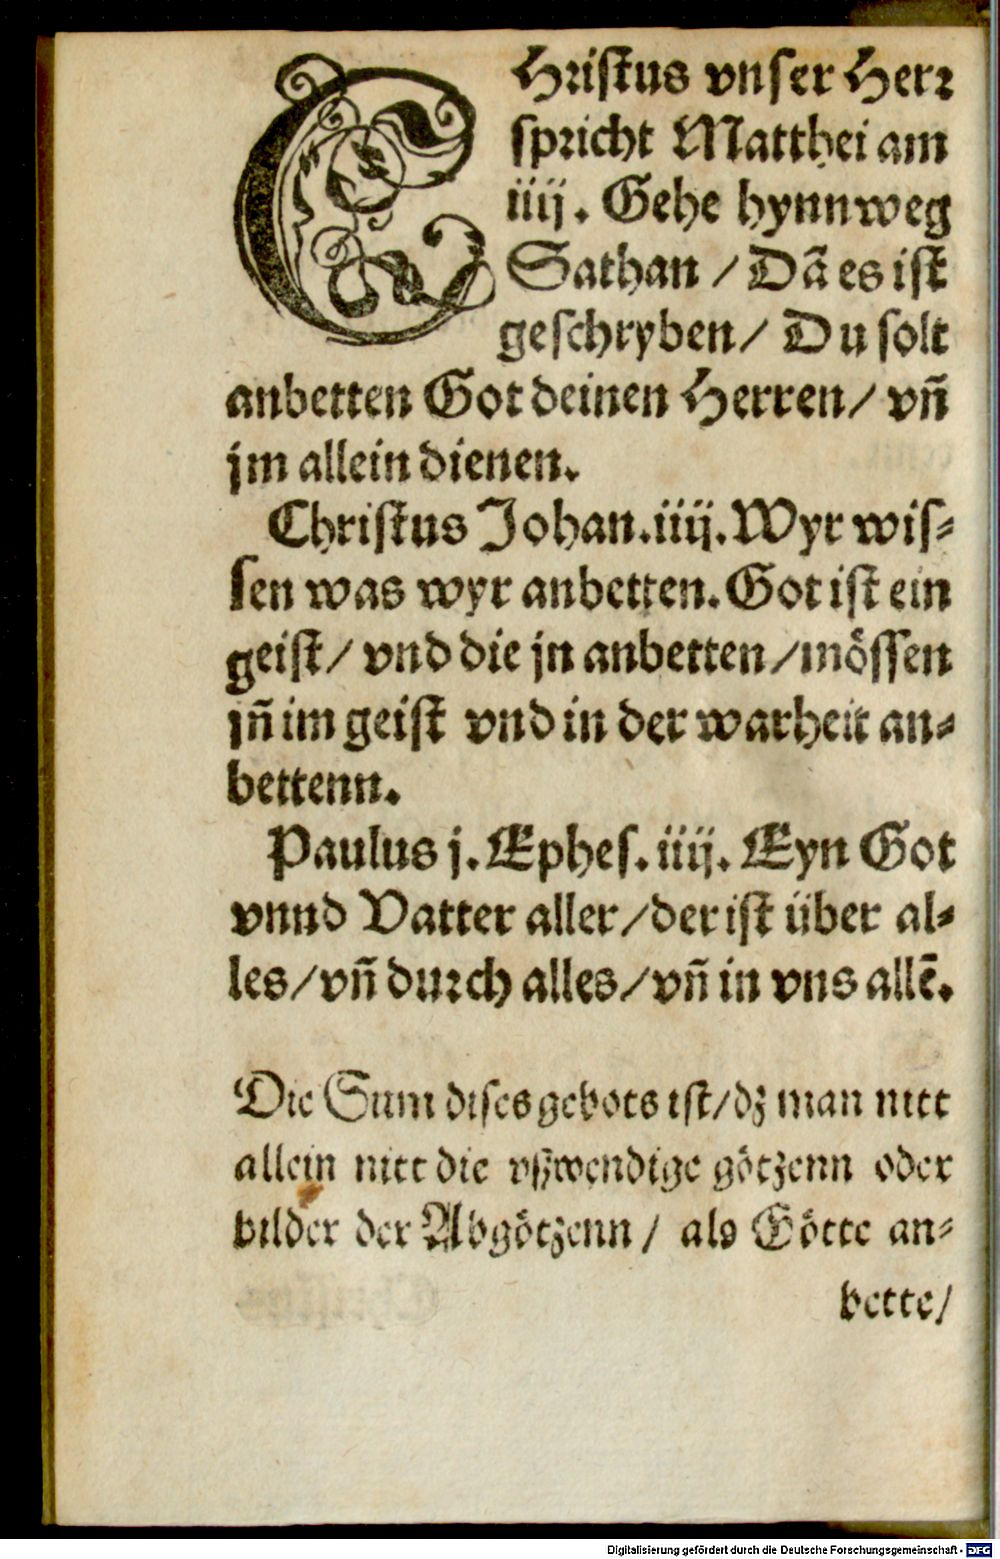 CHristus vnser Herr
spricht Matthei am
iiij. Gehe hynnweg
Sathan / Dā es ist
geschryben / Du solt
anbetten Got deinen Herren / vñ
jm allein dienen.
Christus Johan. iiij. Wyr wis⸗
sen was wyr anbetten. Got ist ein
geist / vnd die jn anbetten / mössen
jñ im geist vnd in der warheit an⸗
bettenn.
Paulus j. Ephes. iiij. Eyn Got
vnnd Vatter aller / der ist über al⸗
les / vñ durch alles / vñ in vns allē.
Die Sum dises gebots ist / dz man nitt
allein nitt die vßwendige götzenn oder
bilder der Abgötzenn / als Götte an⸗
bette /
Digitalisierung gefördert durch die Deutsche Forschungsgemeinschaft - DFG